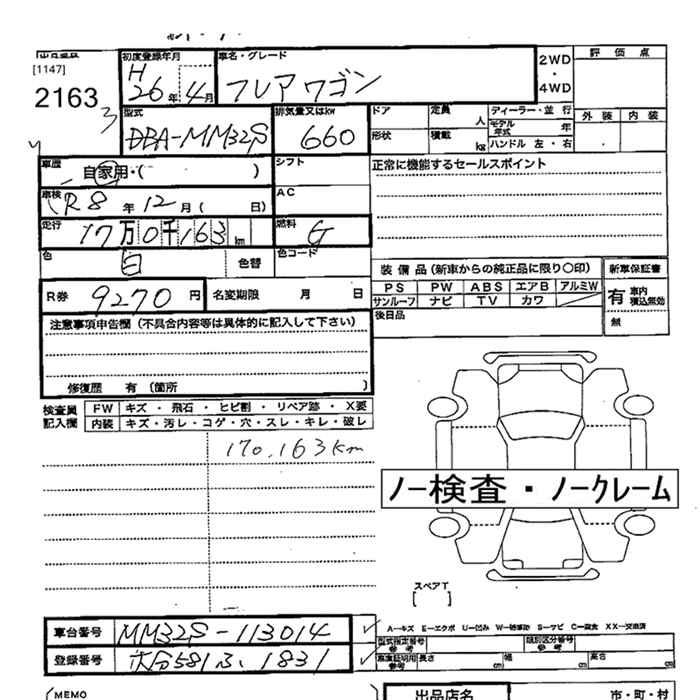 出品番号
[1147]
2163
初度登録年月
H
26年4月
車名・グレード
フレアワゴン
2WD
・
4WD
評価点
外装 内装
3
型式
DBA-MM32S
排気量又はkw
660
ドア
形状
定員
人
積載
kg
ディーラー・並行
モデル年式 年
ハンドル 左・右
車歴
自家用・( )
シフト
正常に機能するセールスポイント
車検
R8年12月( 日)
AC
走行
17万0千163km
燃料
G
色
白
色替
色コード
装備品(新車からの純正品に限り○印)
PS PW ABS エアB アルミW
サンルーフ ナビ TV カワ
新車保証書
有 車内積込無効
無
R券 9270円
名変期限 月 日
後日品
注意事項申告欄(不具合内容等は具体的に記入して下さい)
修復歴 有(箇所
検査員記入欄
FW キズ・飛石・ヒビ割・リペア跡・X要
内装 キズ・汚レ・コゲ・穴・スレ・キレ・破レ
170,163km
ノー検査・ノークレーム
スペアT
[ ]
A-キズ E-エクボ U-凹み W-補修跡 S-サビ C-腐食 XX-交換済
車台番号 MM32S-113014
型式指定番号 参考
類別区分番号 参考
登録番号 大分581ふ1831
車庫証明用参考 長さ cm 幅 cm 高さ cm
MEMO
出品店名
市・町・村